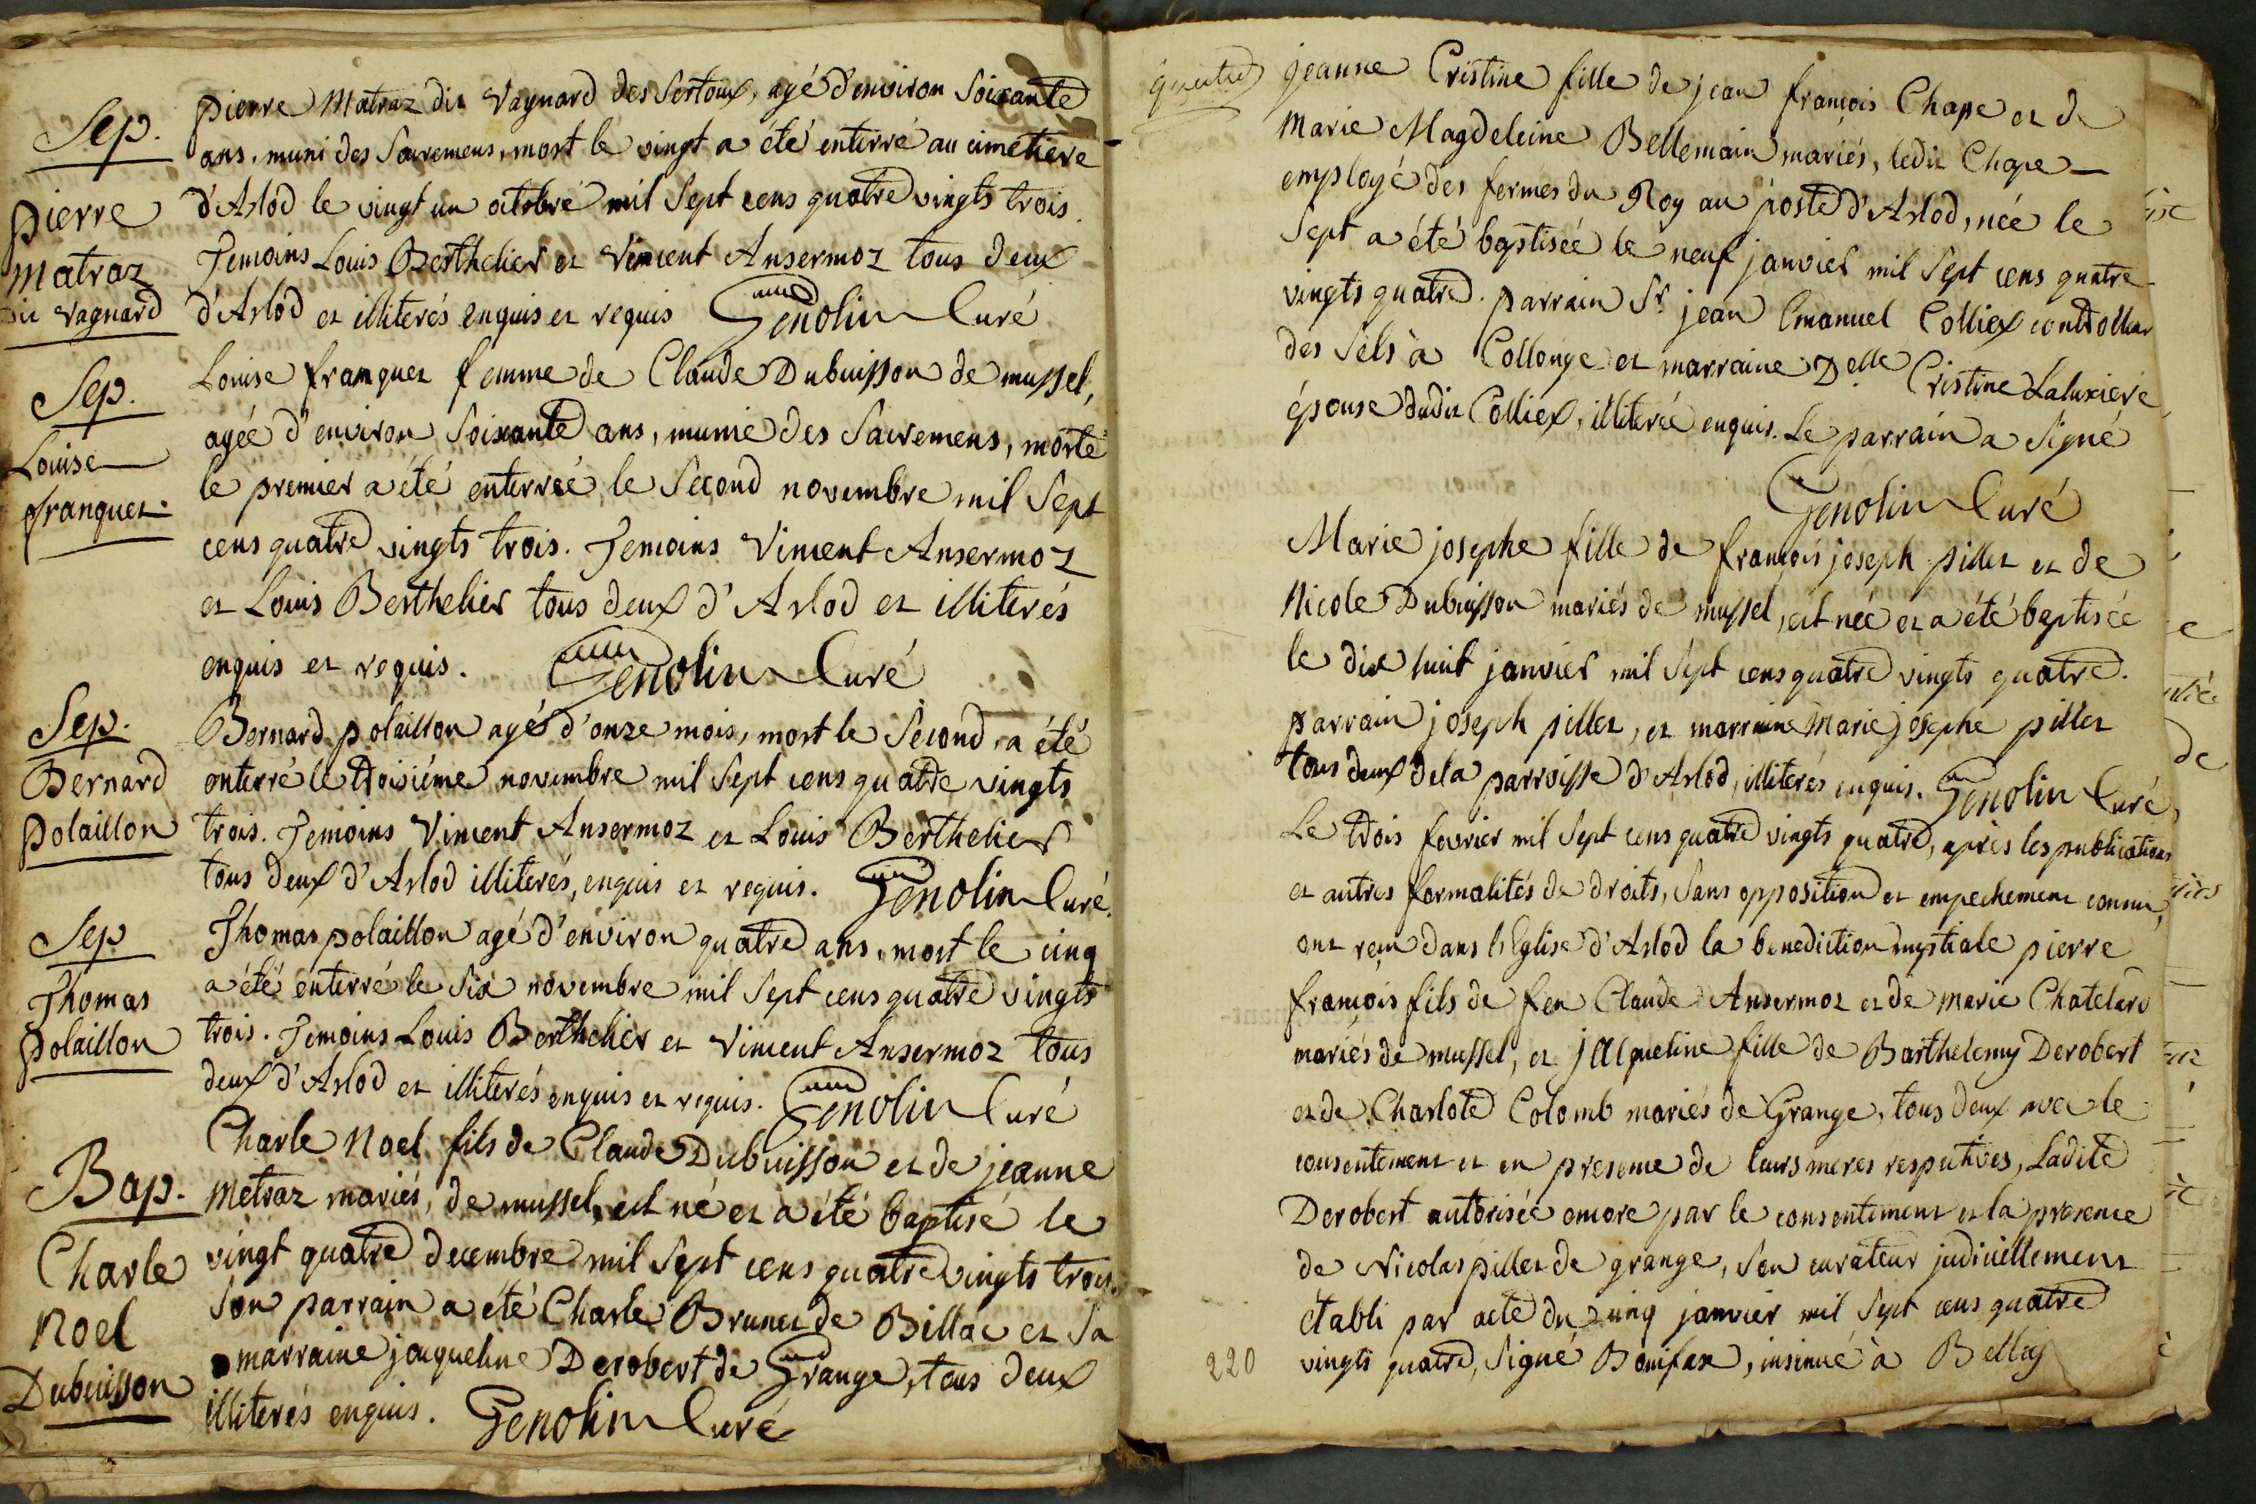 Sep.
Pierre
Matraz
dit Vagnard
Pierre Matraz dit Vagnard des Sertoux, agé d'environ Soixante
ans, muni des Sacremens, mort le vingt a été enterré au cimetiere
d'Arlod le vingt un octobre mil Sept cens quatre vingts trois.
Temoins Louis Berthelier et Vincent Ansermoz tous deux
d'Arlod et illiterés enquis et requis Genolin Curé
Sep.
Louise
franquet
Louise franquet femme de Claude Dubuisson de mussel,
agée d'environ Soixante ans, munie des Sacremens, morte
le premier a été enterreé le Second novembre mil Sept
cens quatre vingts trois. Temoins Vincent Ansermoz
et Louis Berthelier tous deux d'Arlod et illiterés
enquis et requis. Genolin Curé
Sep.
Bernard
polaillon
Bernard polaillon agé d'onze mois, mort le Second, a été
enterré le troisiéme novembre mil Sept cens quatre vingts
trois. Temoins Vincent Ansermoz et Louis Berthelier
tous deux d'Arlod illiterés, enquis et requis. Genolin Curé.
Sep.
Thomas
polaillon
Thomas polaillon agé d'environ quatre ans, mort le cinq
a été enterré le Six novembre mil Sept cens quatre vingts
trois. Temoins Louis Berthelier et Vincent Ansermoz tous
deux d'Arlod et illiterés enquis et requis. Genolin Curé
Bap.
Charle
Noel
Dubuisson
Charle Noel fils de Claude Dubuisson et de jeanne
Metraz mariés, de mussel, est né et a été baptisé le
vingt quatre decembre mil Sept cens quatre vingts trois.
Son parrain a été Charle Brunet de Billac et Sa
marraine jaqueline Derobert de Grange, tous deux
illiterés enquis. Genolin Curé
quatre
jeanne Cristine fille de jean françois Chape et de
Marie Magdeleine Bellemain mariés, ledit Chape
employé des fermes du Roy au poste d'Arlod, née le
Sept a été baptiseé le neuf janvier mil Sept cens quatre
vingts quatre. parrain Sr. jean Emanuel Colliex controlleur
des Sels à Collonge et marraine Delle Cristine Laluxiere
épouse dudit Colliex, illiterée enquis. Le parrain a Signé
Genolin Curé
Marie josephe fille de françois joseph pillet et de
Nicole Dubuisson mariés de mussel, est née et a été baptisée
le dix huit janvier mil Sept cens quatre vingts quatre.
parrain joseph pillet, et marraine Marie josephe pillet
tous deux dela parroisse d'Arlod, illiterés enquis. Genolin Curé,
Le trois fevrier mil Sept cens quatre vingts quatre, après les publications
et autres formalités de droits, Sans opposition et empechement connu,
ont reçu dans l'Eglise d'Arlod la benediction nuptiale pierre
françois fils de feu Claude Ansermoz et de marie Chatelard
mariés de mussel, et jacqueline fille de Barthelemy Derobert
et de Charlote Colomb mariés de Grange, tous deux avec le
consentement et en presence de leurs meres respectives, Ladite
Derobert autorisée encore par le consentement et la presence
de Nicolas pillet de grange, Son curateur judiciellement
établi par acte du cinq janvier mil Sept cens quatre
vingts quatre, Signé Bonifax, insinué à Belley
220